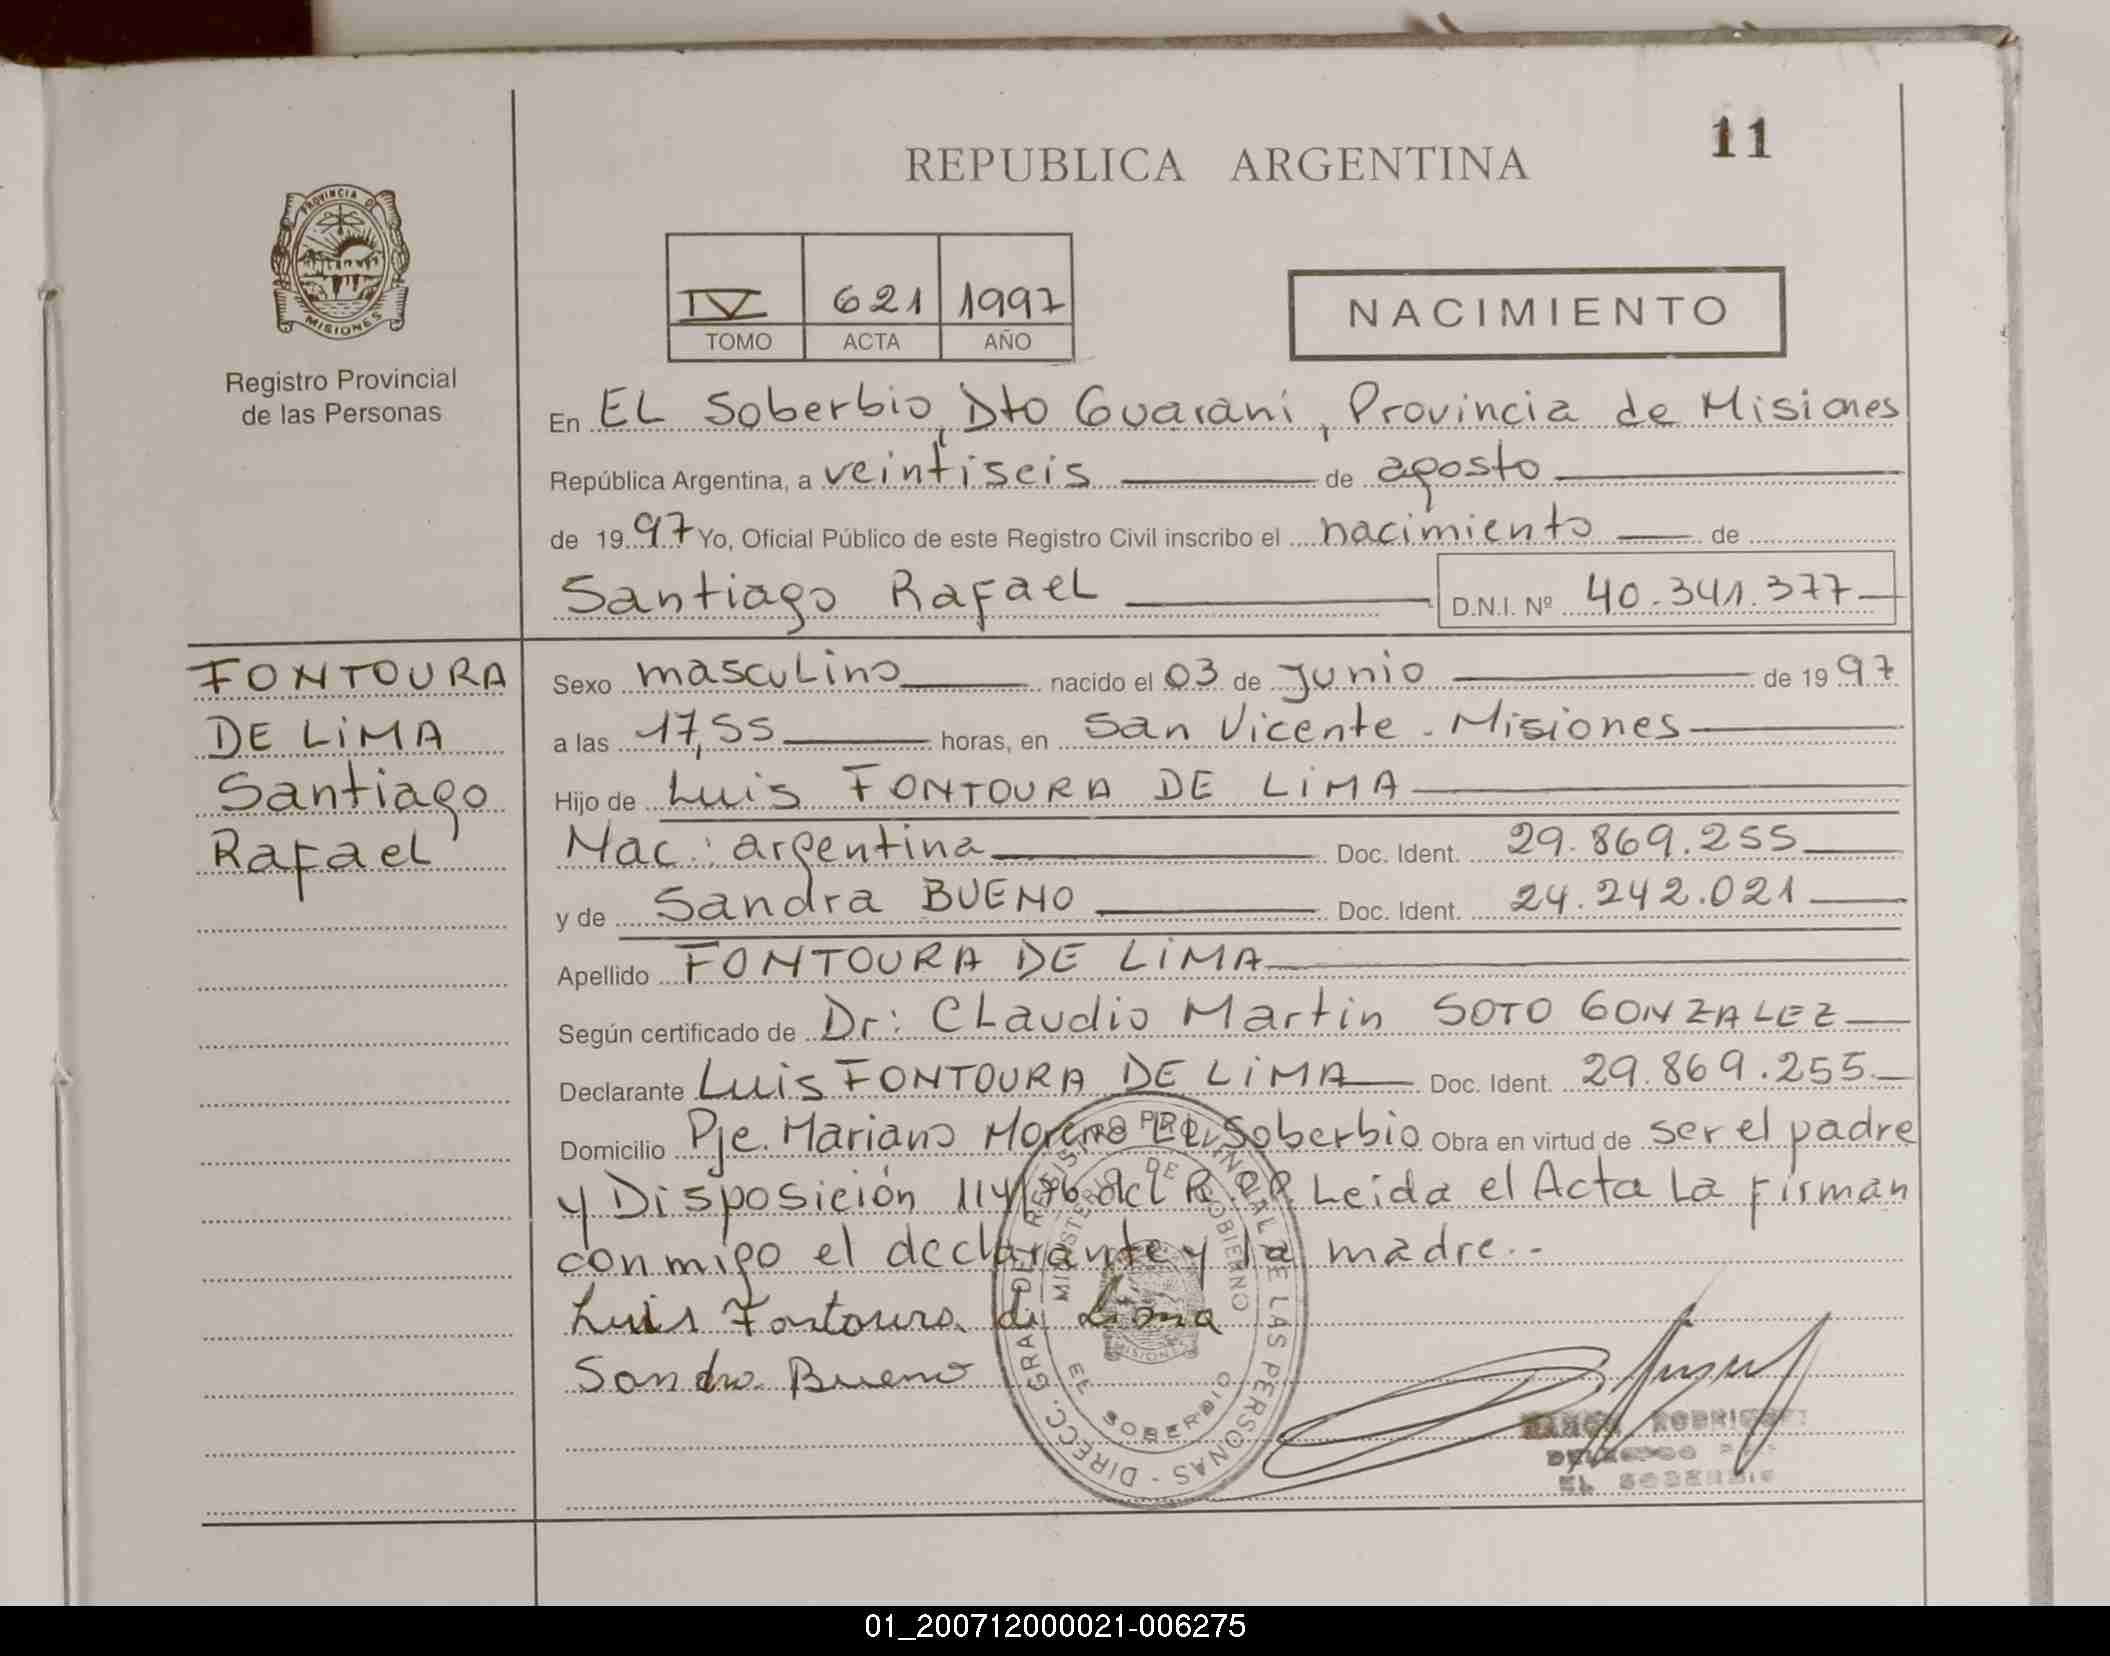 11
REPUBLICA ARGENTINA
PROVINCIA DE
MISIONES
Registro Provincial
de las Personas
IV 621 1997
TOMO ACTA AÑO
NACIMIENTO
En EL Soberbio, Dto Guaraní, Provincia de Misiones
República Argentina, a veintiseis de agosto
de 1997 Yo, Oficial Público de este Registro Civil inscribo el nacimiento de
Santiago Rafael D.N.I. Nº 40.341.377
FONTOURA
DE LIMA
Santiago
Rafael
Sexo masculino nacido el 03 de Junio de 1997
a las 17,55 horas, en San Vicente - Misiones
Hijo de Luis FONTOURA DE LIMA
Nac: argentina Doc. Ident. 29.869.255
y de Sandra BUENO Doc. Ident. 24.242.021
Apellido FONTOURA DE LIMA
Según certificado de Dr: Claudio Martin SOTO GONZALEZ
Declarante Luis FONTOURA DE LIMA Doc. Ident. 29.869.255
Domicilio Pje. Mariano Moreno EL Soberbio Obra en virtud de ser el padre
y Disposición 114/76 del R.P.P. Leida el Acta La firman
conmigo el declarante y la madre.-
Luis Fontoura de Lima
Sandra Bueno
DIRECC. GRAL DEL REGISTRO PROVINCIAL DE LAS PERSONAS
MINISTERIO DE GOBIERNO
MISIONES
EL SOBERBIO
RAMON RODRIGUEZ
EL SOBERBIO
01_200712000021-006275